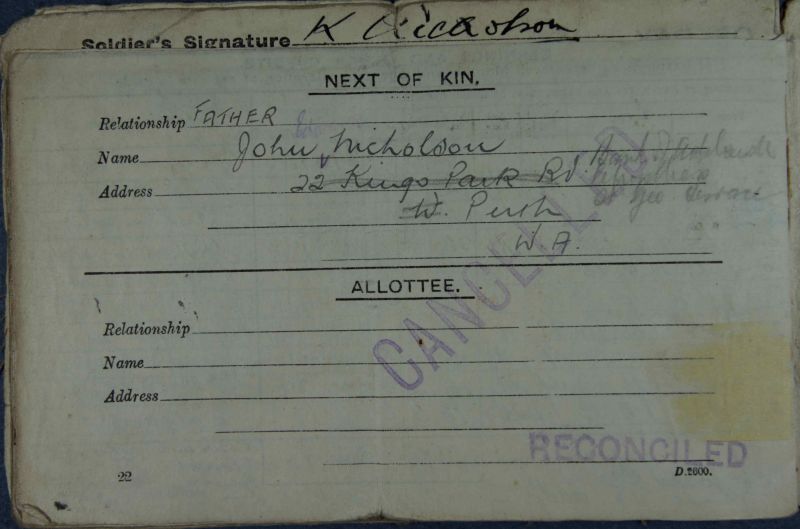 Soldier's Signature K Nicholson
NEXT OF KIN.
Relationship FATHER
Name John Nicholson
Address 22 Kings Park Rd. Bank of Adelaide
W. Perth St Geo Terrace
W A.
CANCELLED
ALLOTTEE.
Relationship
Name
Address
RECONCILED
22 D.2600.